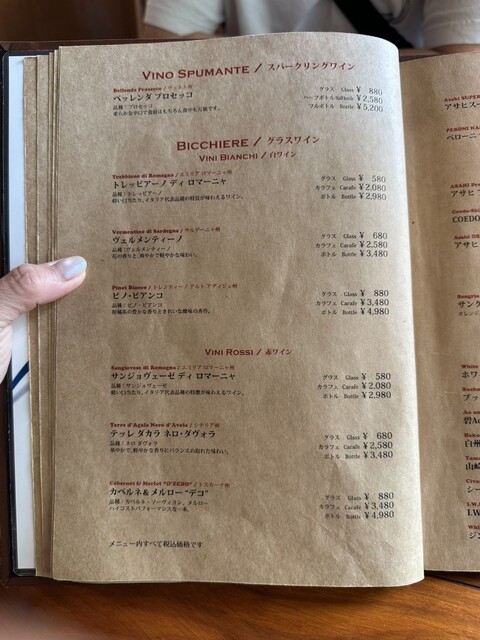 VINO SPUMANTE / スパークリングワイン
Bellenda Prosecco / ヴェネト州
ベッレンダ プロセッコ
品種：プロセッコ
グラス Glass ¥ 880
ハーフボトル Half bottle ¥2,580
フルボトル Bottle ¥5,200
BICCHIERE / グラスワイン
VINI BIANCHI / 白ワイン
Trebbiano di Romagna / エミリア ロマーニャ州
トレッビアーノ ディ ロマーニャ
品種：トレッビアーノ
軽い口当たり、イタリア代表品種の特徴が味わえるワイン。
グラス Glass ¥ 580
カラフェ Carafe ¥2,080
ボトル Bottle ¥2,980
Vermentino di Sardegna / サルデーニャ州
ヴェルメンティーノ
品種：ヴェルメンティーノ
花の香りと、爽やかで軽やかな味わい。
グラス Glass ¥ 680
カラフェ Carafe ¥2,580
ボトル Bottle ¥3,480
Pinot Bianco / トレンティーノ アルト アディジェ州
ピノ・ビアンコ
品種：ピノ・ビアンコ
柑橘系の豊かな香りときれいな酸味の秀作。
グラス Glass ¥ 880
カラフェ Carafe ¥3,480
ボトル Bottle ¥4,980
VINI ROSSI / 赤ワイン
Sangiovese di Romagna / エミリア ロマーニャ州
サンジョヴェーゼ ディ ロマーニャ
品種：サンジョヴェーゼ
軽い口当たり、イタリア代表品種の特徴が味わえるワイン。
グラス Glass ¥ 580
カラフェ Carafe ¥2,080
ボトル Bottle ¥2,980
Terre d'Agala Nero d'Avola / シチリア州
テッレ ダカラ ネロ・ダヴォラ
品種：ネロ ダヴォラ
華やかで、軽やかな香りにバランスの取れた味わい。
グラス Glass ¥ 680
カラフェ Carafe ¥2,580
ボトル Bottle ¥3,480
Cabernet & Merlot "D'ECHO" / トスカーナ州
カベルネ＆メルロー "デコ"
品種：カベルネ・ソーヴィニヨン、メルロー
ハイコストパフォーマンスな一本。
グラス Glass ¥ 880
カラフェ Carafe ¥3,480
ボトル Bottle ¥4,980
メニュー内すべて税込価格です
Asahi SUPER
アサヒスー
PERONI NA
ペローニ
アサヒ
COEDO
アサヒ
White
ホワ